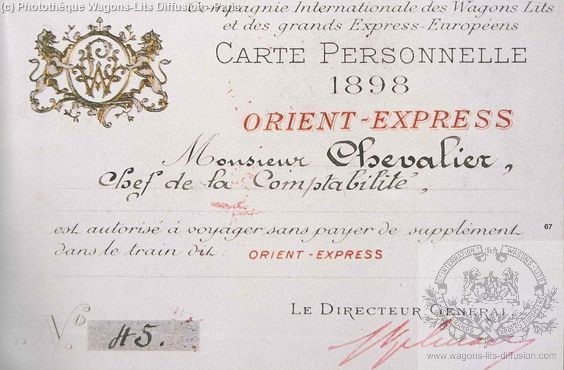 (c) Photothèque Wagons-Lits Diffusion - Paris
Compagnie Internationale des Wagons Lits
et des grands Express-Européens
CARTE PERSONNELLE
1898
ORIENT-EXPRESS
Monsieur Chevalier,
Chef de la Comptabilité,
est autorisé à voyager sans payer de supplément
67
dans le train dit ORIENT-EXPRESS
LE DIRECTEUR GÉNÉRAL
No 45.
www.wagons-lits-diffusion.com